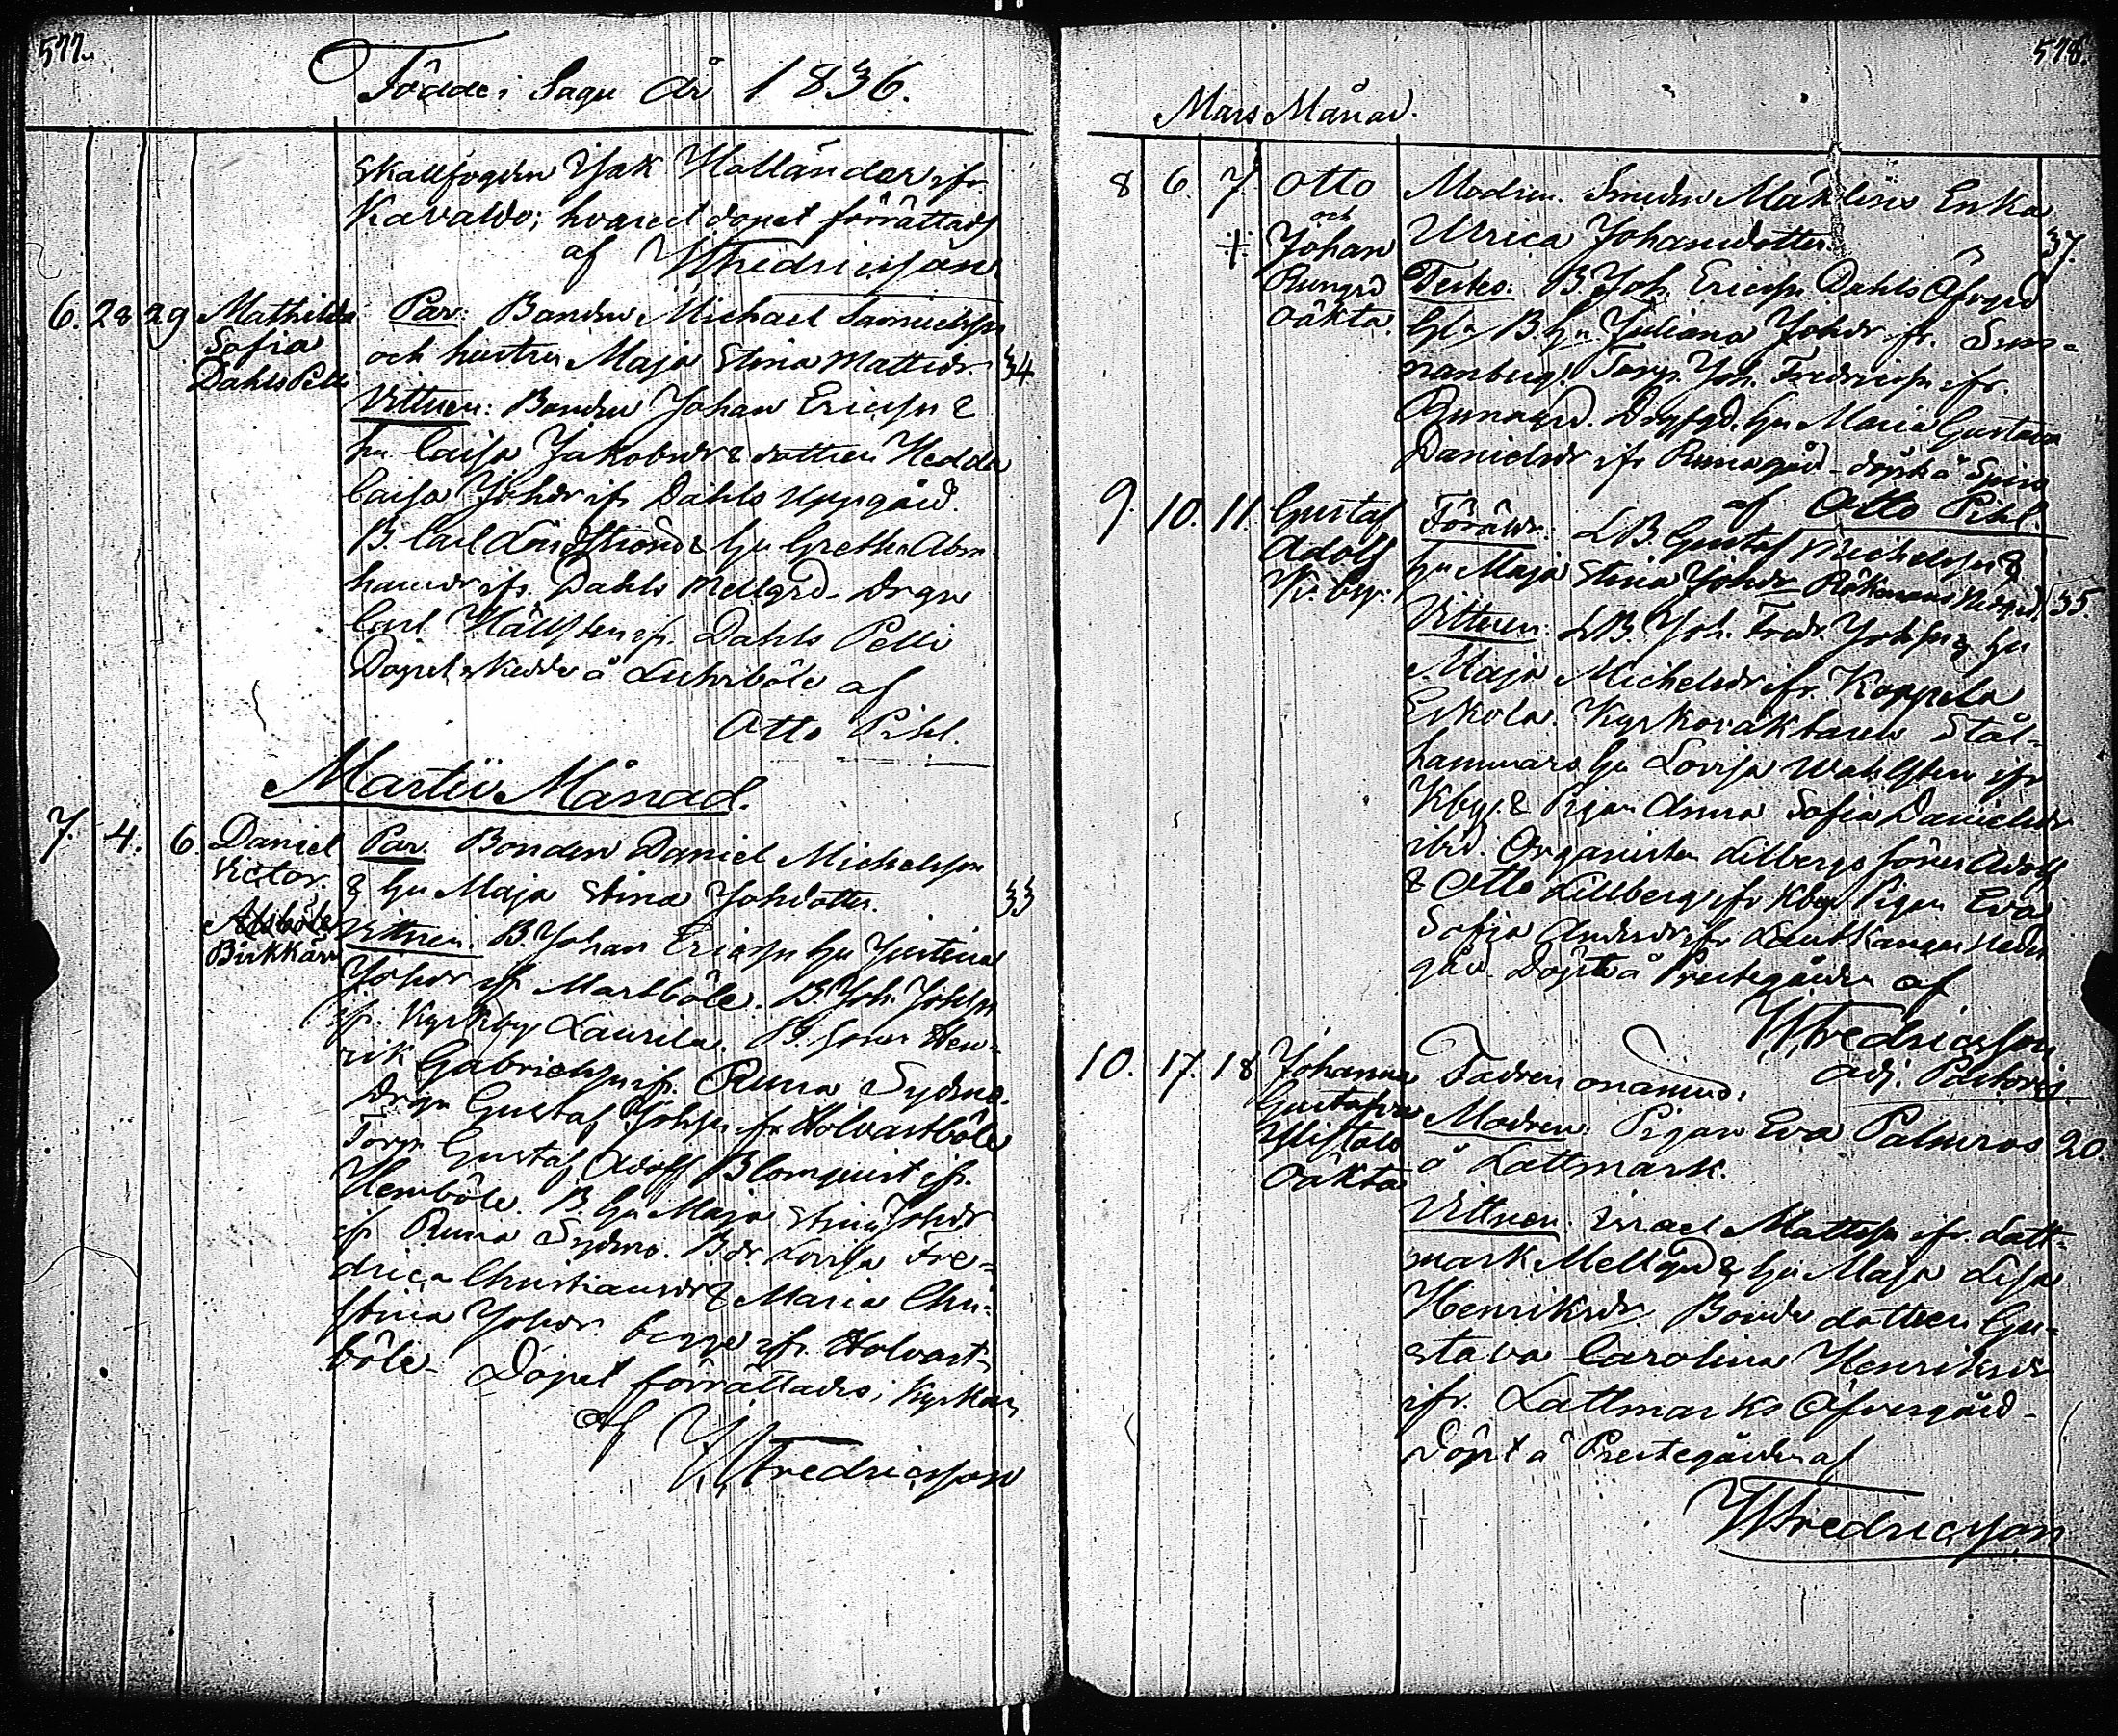 577.
Födde i Sagu År 1836.
Skallfogden Isak Holländer ifr.
Kavaldo; hvarest dopet förrättads
af Fredricsson
6. 28 29 Mathilda Par: Bonden Michael Samuelsson
Sofia och hustru Maja Stina Mattsdr. 34
Dahls Pelli
Vittnen: Bonden Johan Ericssn &
hu Caisa Jakobsdr & dottren Hedda
Caisa Johdr ifr Dahls Uppgård.
B. Carl Lindströnd & hu Gretha Abra
hamsdr ifr. Dahls Mellgrd. Drgn
Carl Hällsten ifr. Dahls Pelli
Dopet skedde å Luhsböle af
Otto Pihl.
Martii Månad.
7. 4. 6. Daniel Par. Bonden Daniel Michelsson
Victor. & hu Maja Stina Johdotter. 33
Birkkärr Vittnen. B. Johan Ericssn hu Justina
Johdr ifr Martböle. B. Joh. Johssn
ifr. Kyrkby Laurila. B. sonen Hen-
rik Gabrielssn ifr. Runa Sydmo.
Drgn Gustaf Johssn ifr Holvastböle
Torp. Gustaf Adolf Blomquist ifr.
Hemböle. B. hu Maja Stina Johdr
ifr Runa Sydmo. B. dr. Lovisa Fre-
drica Christiansdr & Maria Chri-
stina Johdr. begge ifr. Holvast-
böle. Dopet förrättades i Kyrkan
af Fredricsson
578.
Mars Månad.
8 6. 7. Otto Modren. Smeden Mählisis Enka
och
+ Johan Ulrica Johansdotter. 37.
Rungrd Testes: B. Joh. Ericssn Dahls Öfvgrd
oäkta. Gl. B. hu Juliana Johdr ifr. Sun-
nanberg. Torp. Joh. Fredricssn ifr.
Runagrd. hu Maria Gustava
Danielsdr ifr Runagård. döpt å
af Otto Pihl.
9. 10. 11. Gustaf Föräldr: LB. Gustaf Michelssn &
Adolf hu Maja Stina Johdr Nedgrd. 35.
K:by: Vittnen: LB. Joh. Fredr. Johssn & hu
Maja Michelsdr ifr. Koppela
Eskola. Kyrkovaktaren Stål-
hammars hu Lovisa Wahlsten ifr
Kby. & Pigan Anna Sofia Danielsdr
ibid. Organisten Lillbergs söner Adolf
& Otto Lillberg ifr Kby Pigan Eva
Sofia Andersdr ifr Lautkangas Neder
gård. Döpt å Prestegården af
Fredricsson
adj. Pastoris.
10. 17. 18 Johanna Fadren onämnd.
Gustafva Modren: Pigan Eva Palmros 20.
oäkta å Lattmark.
Vittnen: Israel Mattssn ifr. Latt-
mark Mellgrd & hu Maja Lisa
Henriksdr. Bonde dottren Gu-
stava Carolina Henriksdr
ifr. Lattmarks Öfvergård.
Döpt å Prestegården af
Fredricsson